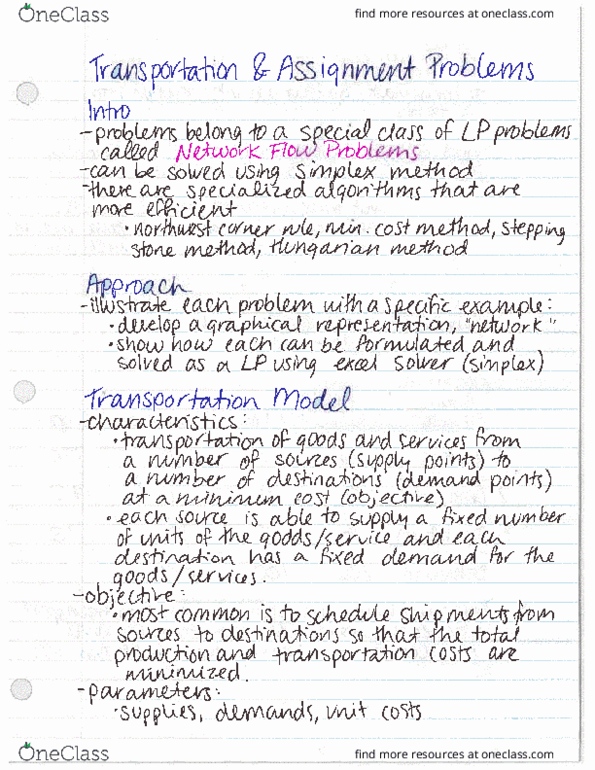 OneClass
find more resources at oneclass.com
Transportation & Assignment Problems
Intro
-problems belong to a special class of LP problems
called Network Flow Problems
-can be solved using simplex method
-there are specialized algorithms that are
more efficient
•northwest corner rule, min. cost method, stepping
stone method, Hungarian method
Approach
-illustrate each problem with a specific example:
•develop a graphical representation, "network"
•show how each can be formulated and
solved as a LP using excel solver (simplex)
Transportation Model
-characteristics:
•transportation of goods and services from
a number of sources (supply points) to
a number of destinations (demand points)
at a minimum cost (objective)
•each source is able to supply a fixed number
of units of the goods/service and each
destination has a fixed demand for the
goods/services.
-objective:
•most common is to schedule shipments from
sources to destinations so that the total
production and transportation costs are
minimized.
-parameters:
•supplies, demands, unit costs
OneClass
find more resources at oneclass.com